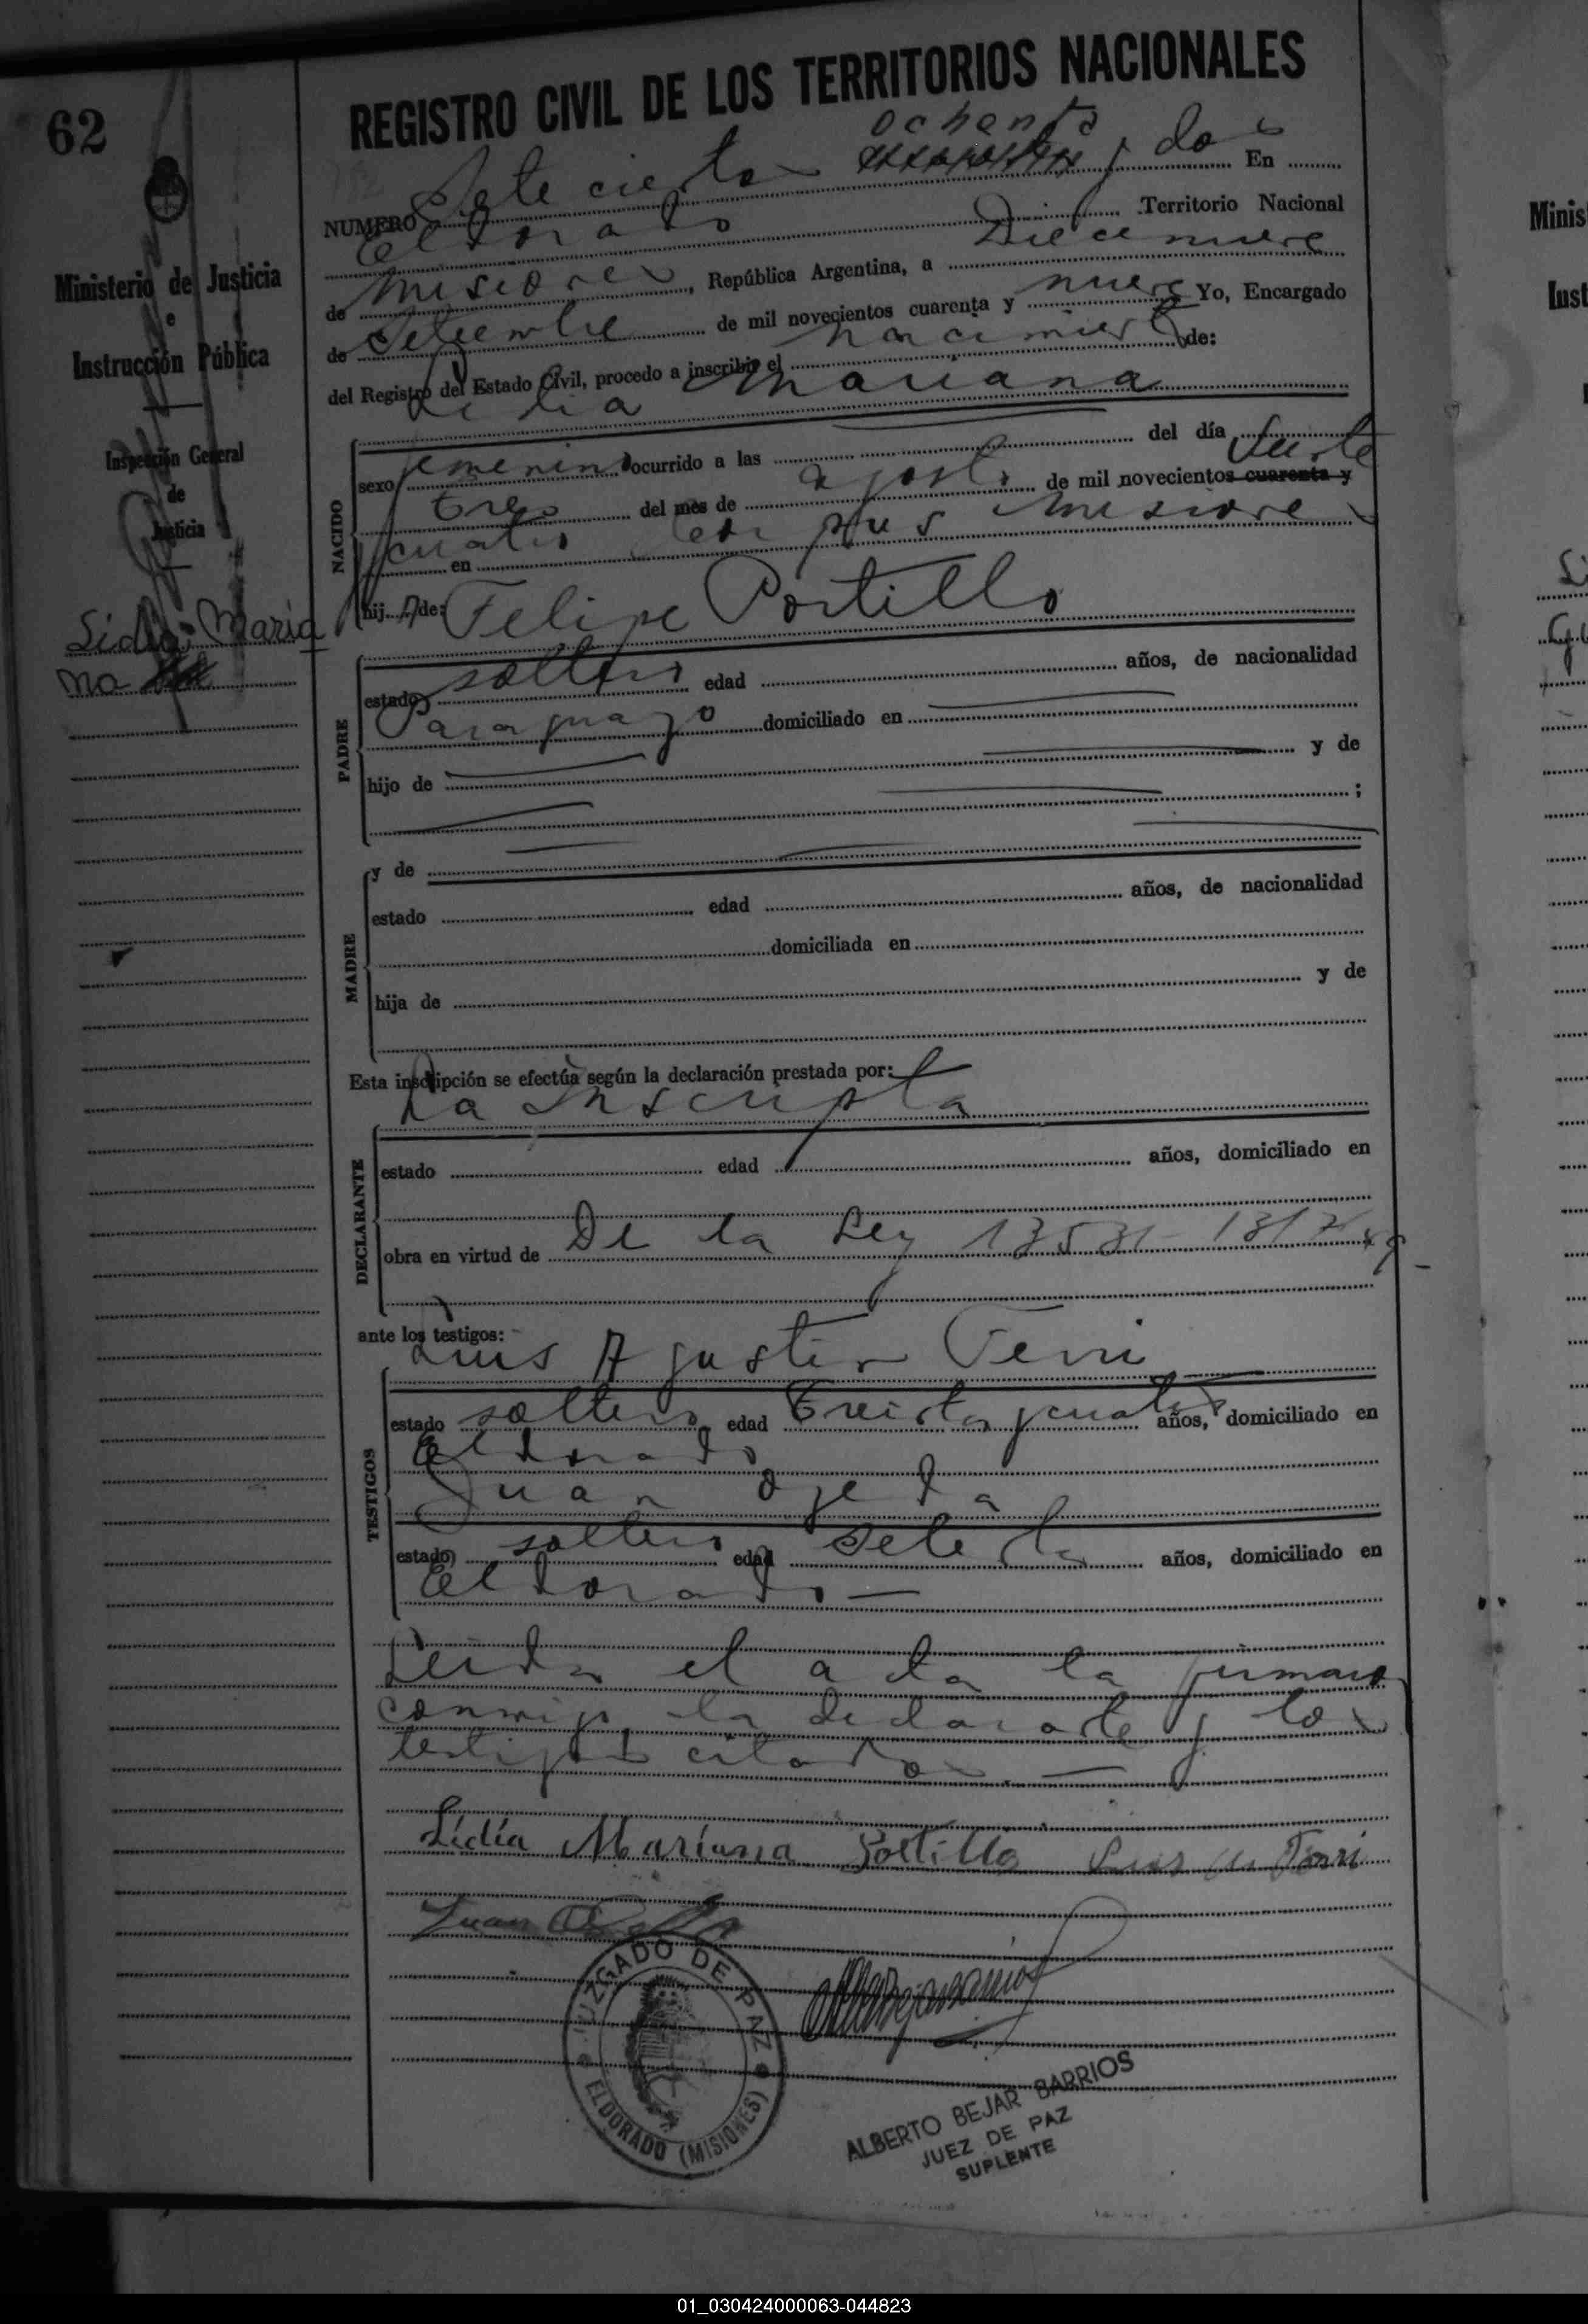 62
Ministerio de Justicia
e
Instrucción Pública
Inspección General
de
Justicia
Lidia Maria
na
REGISTRO CIVIL DE LOS TERRITORIOS NACIONALES
ochenta
NUMERO Sete cientos y dos En
Eldorado Territorio Nacional
de Misiones, República Argentina, a Diecinueve
de Setiembre de mil novecientos cuarenta y nueve Yo, Encargado
del Registro del Estado Civil, procedo a inscribir el nacimiento de:
Lidia Mariana
NACIDO
sexo femenino ocurrido a las del día
tres del mes de agosto de mil novecientos cuarenta y veinte
y cuatro en Corpus Misiones
hij a de: Felipe Portillo
PADRE
estado soltero edad años, de nacionalidad
Paraguayo domiciliado en
hijo de y de
;
MADRE
y de
estado edad años, de nacionalidad
domiciliada en
hija de y de
Esta inscripción se efectúa según la declaración prestada por:
La inscripta
DECLARANTE
estado edad años, domiciliado en
obra en virtud de De la Ley
ante los testigos:
Luis Agustin Ferri
TESTIGOS
estado soltero edad treinta y cuatro años, domiciliado en
Eldorado
Juan Ojeda
estado soltero edad setenta años, domiciliado en
Eldorado —
Leida el acta la firmaro
conmigo, la declarante y los
testigos citados. —
Lidia Mariana Portillo Luis A Ferri
Juan
JUZGADO DE PAZ
ELDORADO (MISIONES)
ALBERTO BEJAR BARRIOS
JUEZ DE PAZ
SUPLENTE
Minis
Inst
01_030424000063-044823